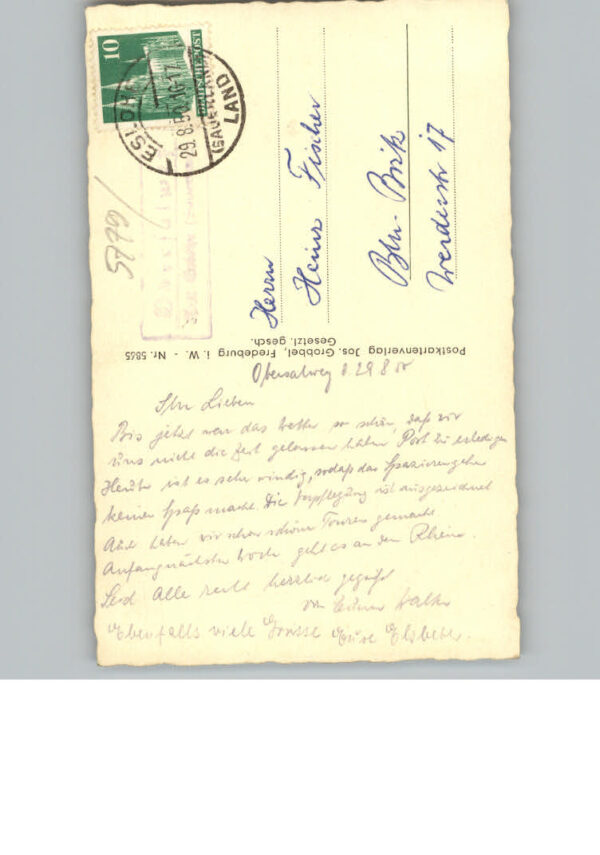 10
DEUTSCHE POST
ESLOHE
29.8.50.16-17
(SAUERLAND)
LAND
5779/
Herrn
Heinz Fischer
Bln-Britz
Werderstr 17
Postkartenverlag Jos. Grobbel, Fredeburg i. W. - Nr. 5865
Gesetzl. gesch.
Obersalwey d. 29 8 50
Ihr Lieben
Bis jetzt war das Wetter so schön, daß wir
uns nicht die Zeit gelassen haben Post zu erledigen
Heute ist es sehr windig, sodaß das Spazierengehn
keinen Spaß macht. Die Verpflegung ist ausgezeichnet
Auch haben wir schon schöne Touren gemacht
Anfang nächster Woche geht es an den Rhein.
Seid Alle recht herzlich gegrüßt
von
Ebenfalls viele Grüsse Eure Elsbeth.